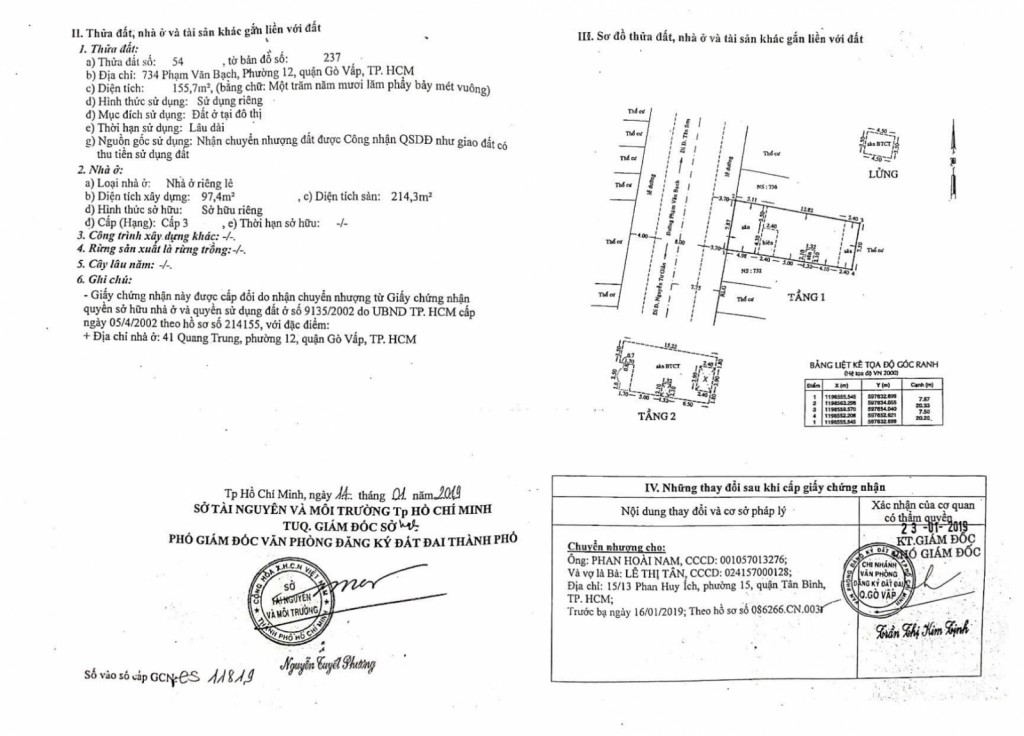 II. Thửa đất, nhà ở và tài sản khác gắn liền với đất
1. Thửa đất:
a) Thửa đất số: 54 , tờ bản đồ số: 237
b) Địa chỉ: 734 Phạm Văn Bạch, Phường 12, quận Gò Vấp, TP. HCM
c) Diện tích: 155,7m², (bằng chữ: Một trăm năm mươi lăm phẩy bảy mét vuông)
d) Hình thức sử dụng: Sử dụng riêng
đ) Mục đích sử dụng: Đất ở tại đô thị
e) Thời hạn sử dụng: Lâu dài
g) Nguồn gốc sử dụng: Nhận chuyển nhượng đất được Công nhận QSDĐ như giao đất có
thu tiền sử dụng đất
2. Nhà ở:
a) Loại nhà ở: Nhà ở riêng lẻ
b) Diện tích xây dựng: 97,4m² , c) Diện tích sàn: 214,3m²
d) Hình thức sở hữu: Sở hữu riêng
đ) Cấp (Hạng): Cấp 3 , e) Thời hạn sở hữu: -/-
3. Công trình xây dựng khác: -/-.
4. Rừng sản xuất là rừng trồng:-/-.
5. Cây lâu năm: -/-.
6. Ghi chú:
- Giấy chứng nhận này được cấp đổi do nhận chuyển nhượng từ Giấy chứng nhận
quyền sở hữu nhà ở và quyền sử dụng đất ở số 9135/2002 do UBND TP. HCM cấp
ngày 05/4/2002 theo hồ sơ số 214155, với đặc điểm:
+ Địa chỉ nhà ở: 41 Quang Trung, phường 12, quận Gò Vấp, TP. HCM
Tp Hồ Chí Minh, ngày 14 tháng 01 năm 2019
SỞ TÀI NGUYÊN VÀ MÔI TRƯỜNG Tp HỒ CHÍ MINH
TUQ. GIÁM ĐỐC SỞ
PHÓ GIÁM ĐỐC VĂN PHÒNG ĐĂNG KÝ ĐẤT ĐAI THÀNH PHỐ
CỘNG HÒA X.H.C.N VIỆT NAM
SỞ
TÀI NGUYÊN
VÀ MÔI TRƯỜNG
THÀNH PHỐ HỒ CHÍ MINH
Nguyễn Tuyết Phương
Số vào sổ cấp GCN: CS 11819
III. Sơ đồ thửa đất, nhà ở và tài sản khác gắn liền với đất
Thổ cư
Thổ cư
Thổ cư
Thổ cư
Thổ cư
Thổ cư
Thổ cư
Thổ cư
Thổ cư
Thổ cư
lề đường
lề đường
Đi Đ. Tân Sơn
Đường Phạm Văn Bạch
Đi Đ. Nguyễn Tư Giản
NS : 736
NS : 732
sân
hiên
sân
4.00
8.00
7.75
TẦNG 1
4.50
sàn BTCT
4.50
LỬNG
15.32
sàn BTCT
TẦNG 2
BẢNG LIỆT KÊ TỌA ĐỘ GÓC RANH
(Hệ tọa độ VN 2000)
Điểm X (m) Y (m) Cạnh (m)
7.87
20.33
7.50
20.20
IV. Những thay đổi sau khi cấp giấy chứng nhận
Nội dung thay đổi và cơ sở pháp lý
Xác nhận của cơ quan
có thẩm quyền
Chuyển nhượng cho:
Ông: PHAN HOÀI NAM, CCCD: 001057013276;
Và vợ là Bà: LÊ THỊ TÂN, CCCD: 024157000128;
Địa chỉ: 15/13 Phan Huy Ích, phường 15, quận Tân Bình,
TP. HCM;
Trước bạ ngày 16/01/2019; Theo hồ sơ số 086266.CN.003
23 -01- 2019
KT.GIÁM ĐỐC
PHÓ GIÁM ĐỐC
CHI NHÁNH
VĂN PHÒNG
ĐĂNG KÝ ĐẤT ĐAI
Q.GÒ VẤP
Trần Thị Kim Định